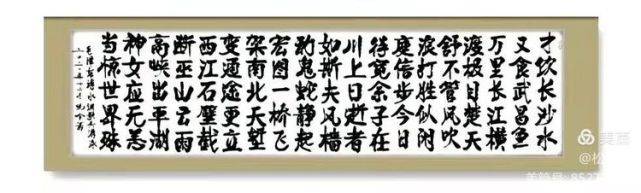 才饮长沙水
又食武昌鱼
万里长江横
渡极目楚天
舒不管风吹
浪打胜似闲
庭信步今日
得宽余子在
川上曰逝者
如斯夫风樯
动龟蛇静起
宏图一桥飞
架南北天堑
变通途更立
西江石壁截
断巫山云雨
高峡出平湖
神女应无恙
当惊世界殊
毛泽东
美篇
@松
美篇号